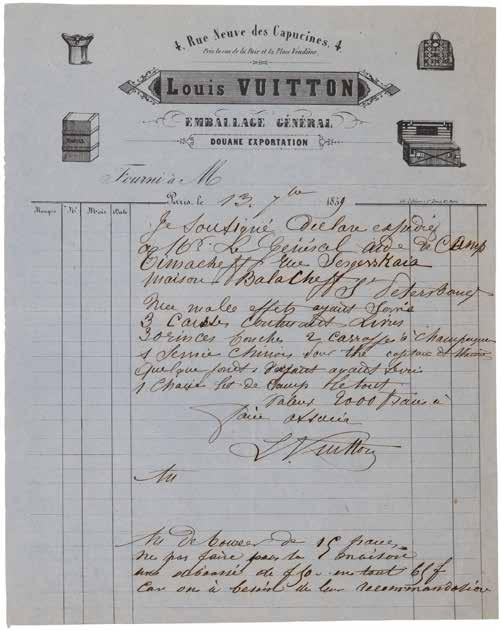 4, Rue Neuve des Capucines, 4.
Près la rue de la Paix et la Place Vendôme.
Louis VUITTON
EMBALLAGE GÉNÉRAL
DOUANE EXPORTATION
Fourni à M
Paris, le 13 7bre 1859
Je soussigné déclare expédié
à Mr Le Général aide de Camp
Timacheff rue Sergerskaia
maison Balacheff
St Petersbourg
une malle effets ayant Servie
3 Caisses contenant Livres
30 2 carraffes à Champagne
1 Service Chinois pour the
quelque ayant Servi
1 Chaise lit de Camp Le tout
Valeur 2000 francs à
faire assurer
L Vuitton
de 15 francs
ne pas faire payer la maison
une de f 50 en tout 65 f
Car on à besoin de leur recommandation